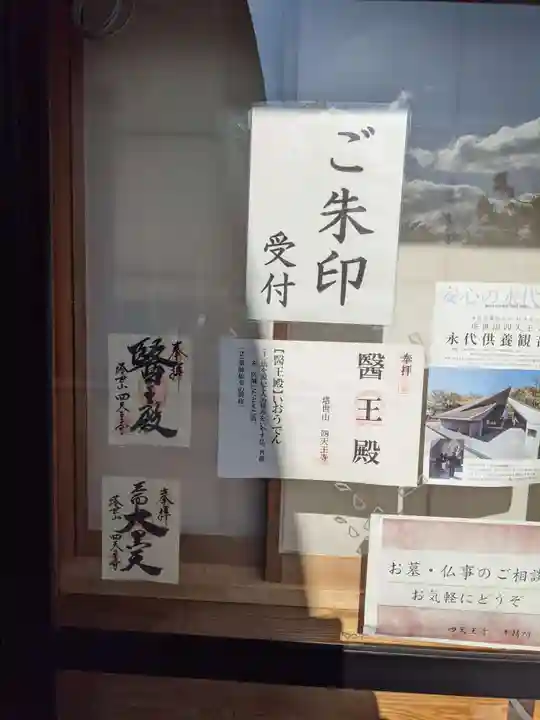 ご朱印
受付
奉拝
醫王殿
塔世山 四天王寺
【醫王殿】いおうでん
奉拝
醫王殿
塔世山 四天王寺
奉拝
三面大黒天
塔世山 四天王寺
安心の永代
塔世山四天王
永代供養観音
お墓・仏事のご相談
お気軽にどうぞ
四天王寺